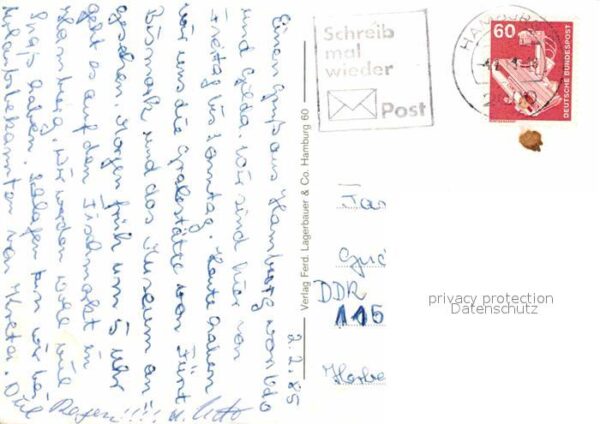 2.2.85
Einen Gruß aus Hamburg von Udo
und Gilda. Wir sind hier von
Freitag zu Sonntag. Heute haben
wir uns die Grabstätte von Fürst
Bismark und das Museum an=
gesehen. Morgen früh um 5 Uhr
geht es auf den Fischmarkt in
Hamburg. Wir werden wohl viel
Spaß haben. Schlafen tun wir bei
Urlaubsbekannten von Kreta.
Regen!!!!
Verlag Ferd. Lagerbauer & Co. Hamburg 60
Schreib
mal
wieder
Post
HAMBURG
60
DEUTSCHE BUNDESPOST
Fa
DDR
115
privacy protection
Datenschutz